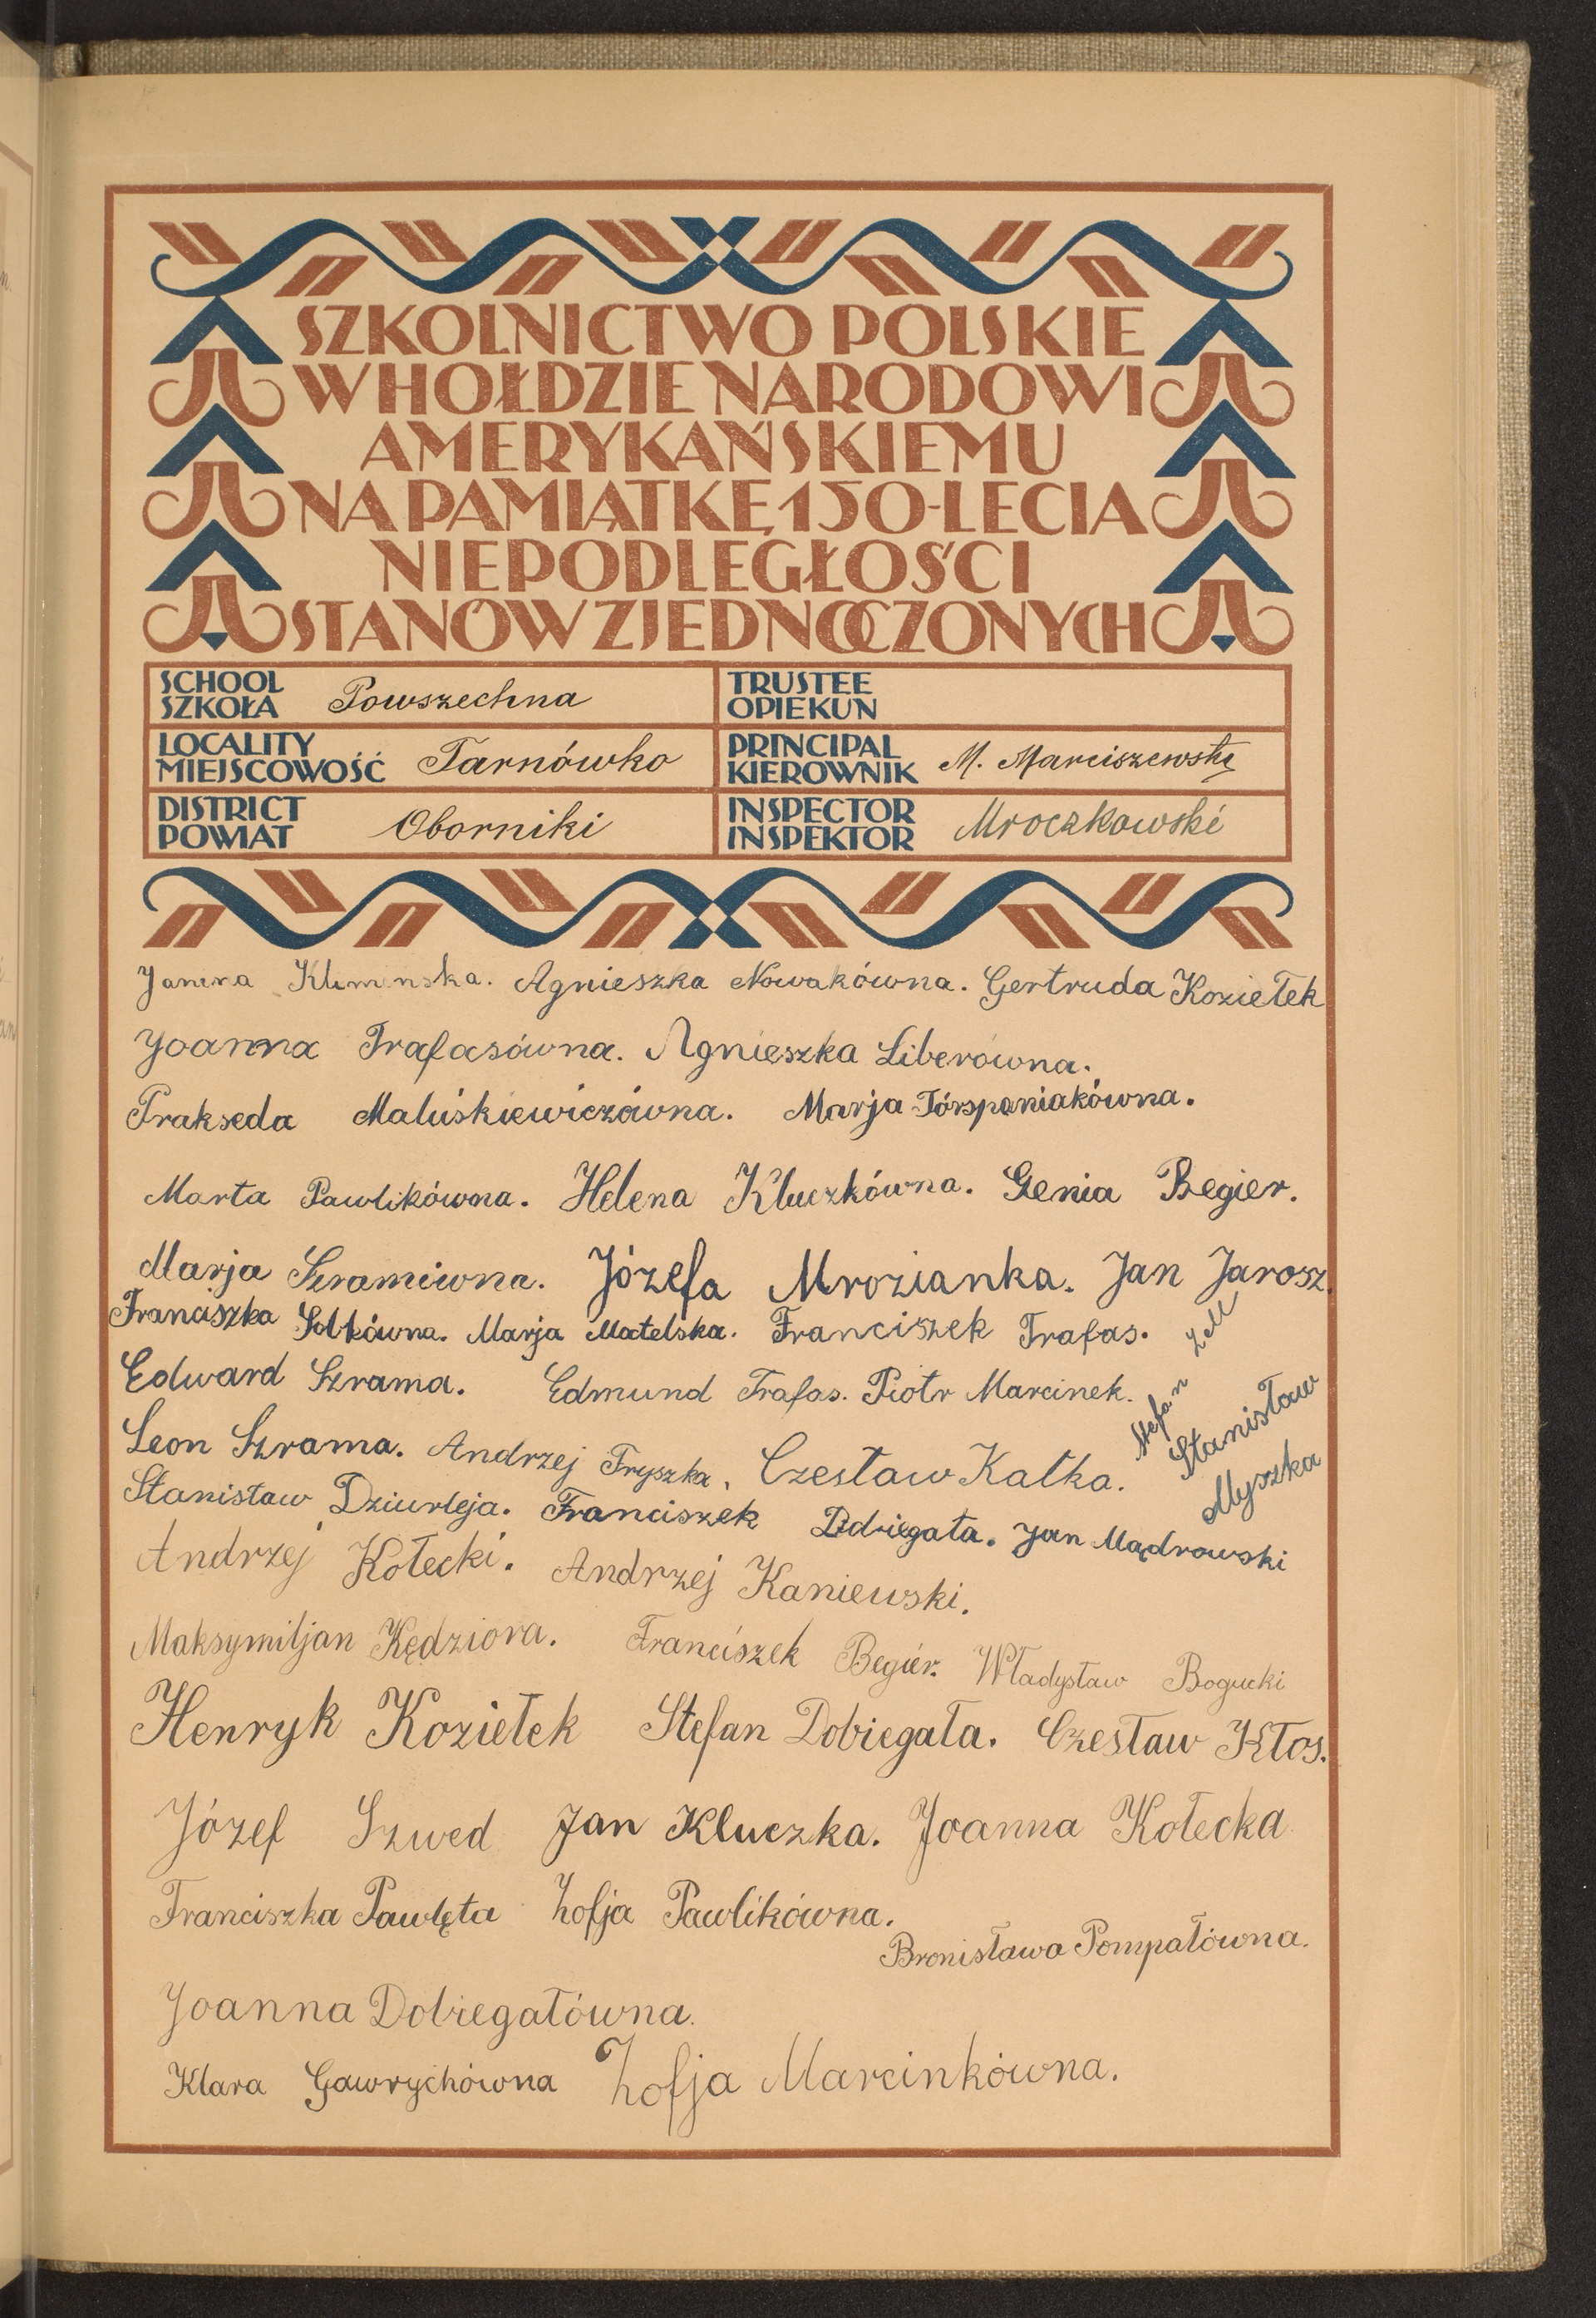 SZKOLNICTWO POLSKIE
W HOŁDZIE NARODOWI
AMERYKAŃSKIEMU
NA PAMIĄTKĘ 150-LECIA
NIEPODLEGŁOŚCI
STANÓW ZJEDNOCZONYCH
SCHOOL
SZKOŁA Powszechna
TRUSTEE
OPIEKUN
LOCALITY
MIEJSCOWOŚĆ Tarnówko
PRINCIPAL
KIEROWNIK M. Marciszewski
DISTRICT
POWIAT Oborniki
INSPECTOR
INSPEKTOR Mroczkowski
Janina Kliminska. Agnieszka Nowakówna. Gertruda Koziełek
Joanna Trafasówna. Agnieszka Liberówna.
Prakseda Maluśkiewiczówna. Marja Tórzpaniakówna.
Marta Pawlikówna. Helena Kluczkówna. Genia Begier.
Marja Szramiwna. Józefa Mrozianka. Jan Jarosz.
Franciszka Sobkówna. Marja Matelska. Franciszek Trafas.
Edward Szrama. Edmund Trafas. Piotr Marcinek.
Stefan Zell
Leon Szrama. Andrzej Fryszka, Czesław Kałka.
Stanisław
Myszka
Stanisław Dziurleja. Franciszek Dobiegała. Jan Mądrowski
Andrzej Kołecki. Andrzej Kaniewski.
Maksymiljan Kędziora. Franciszek Begier. Władysław Bogucki
Henryk Koziełek Stefan Dobiegała. Czesław Kłos.
Józef Szwed Jan Kluczka. Joanna Kołecka
Franciszka Pawlęta Zofja Pawlikówna.
Bronisława Pompałówna.
Joanna Dobiegałówna.
Klara Gawrychówna Zofja Marcinkówna.